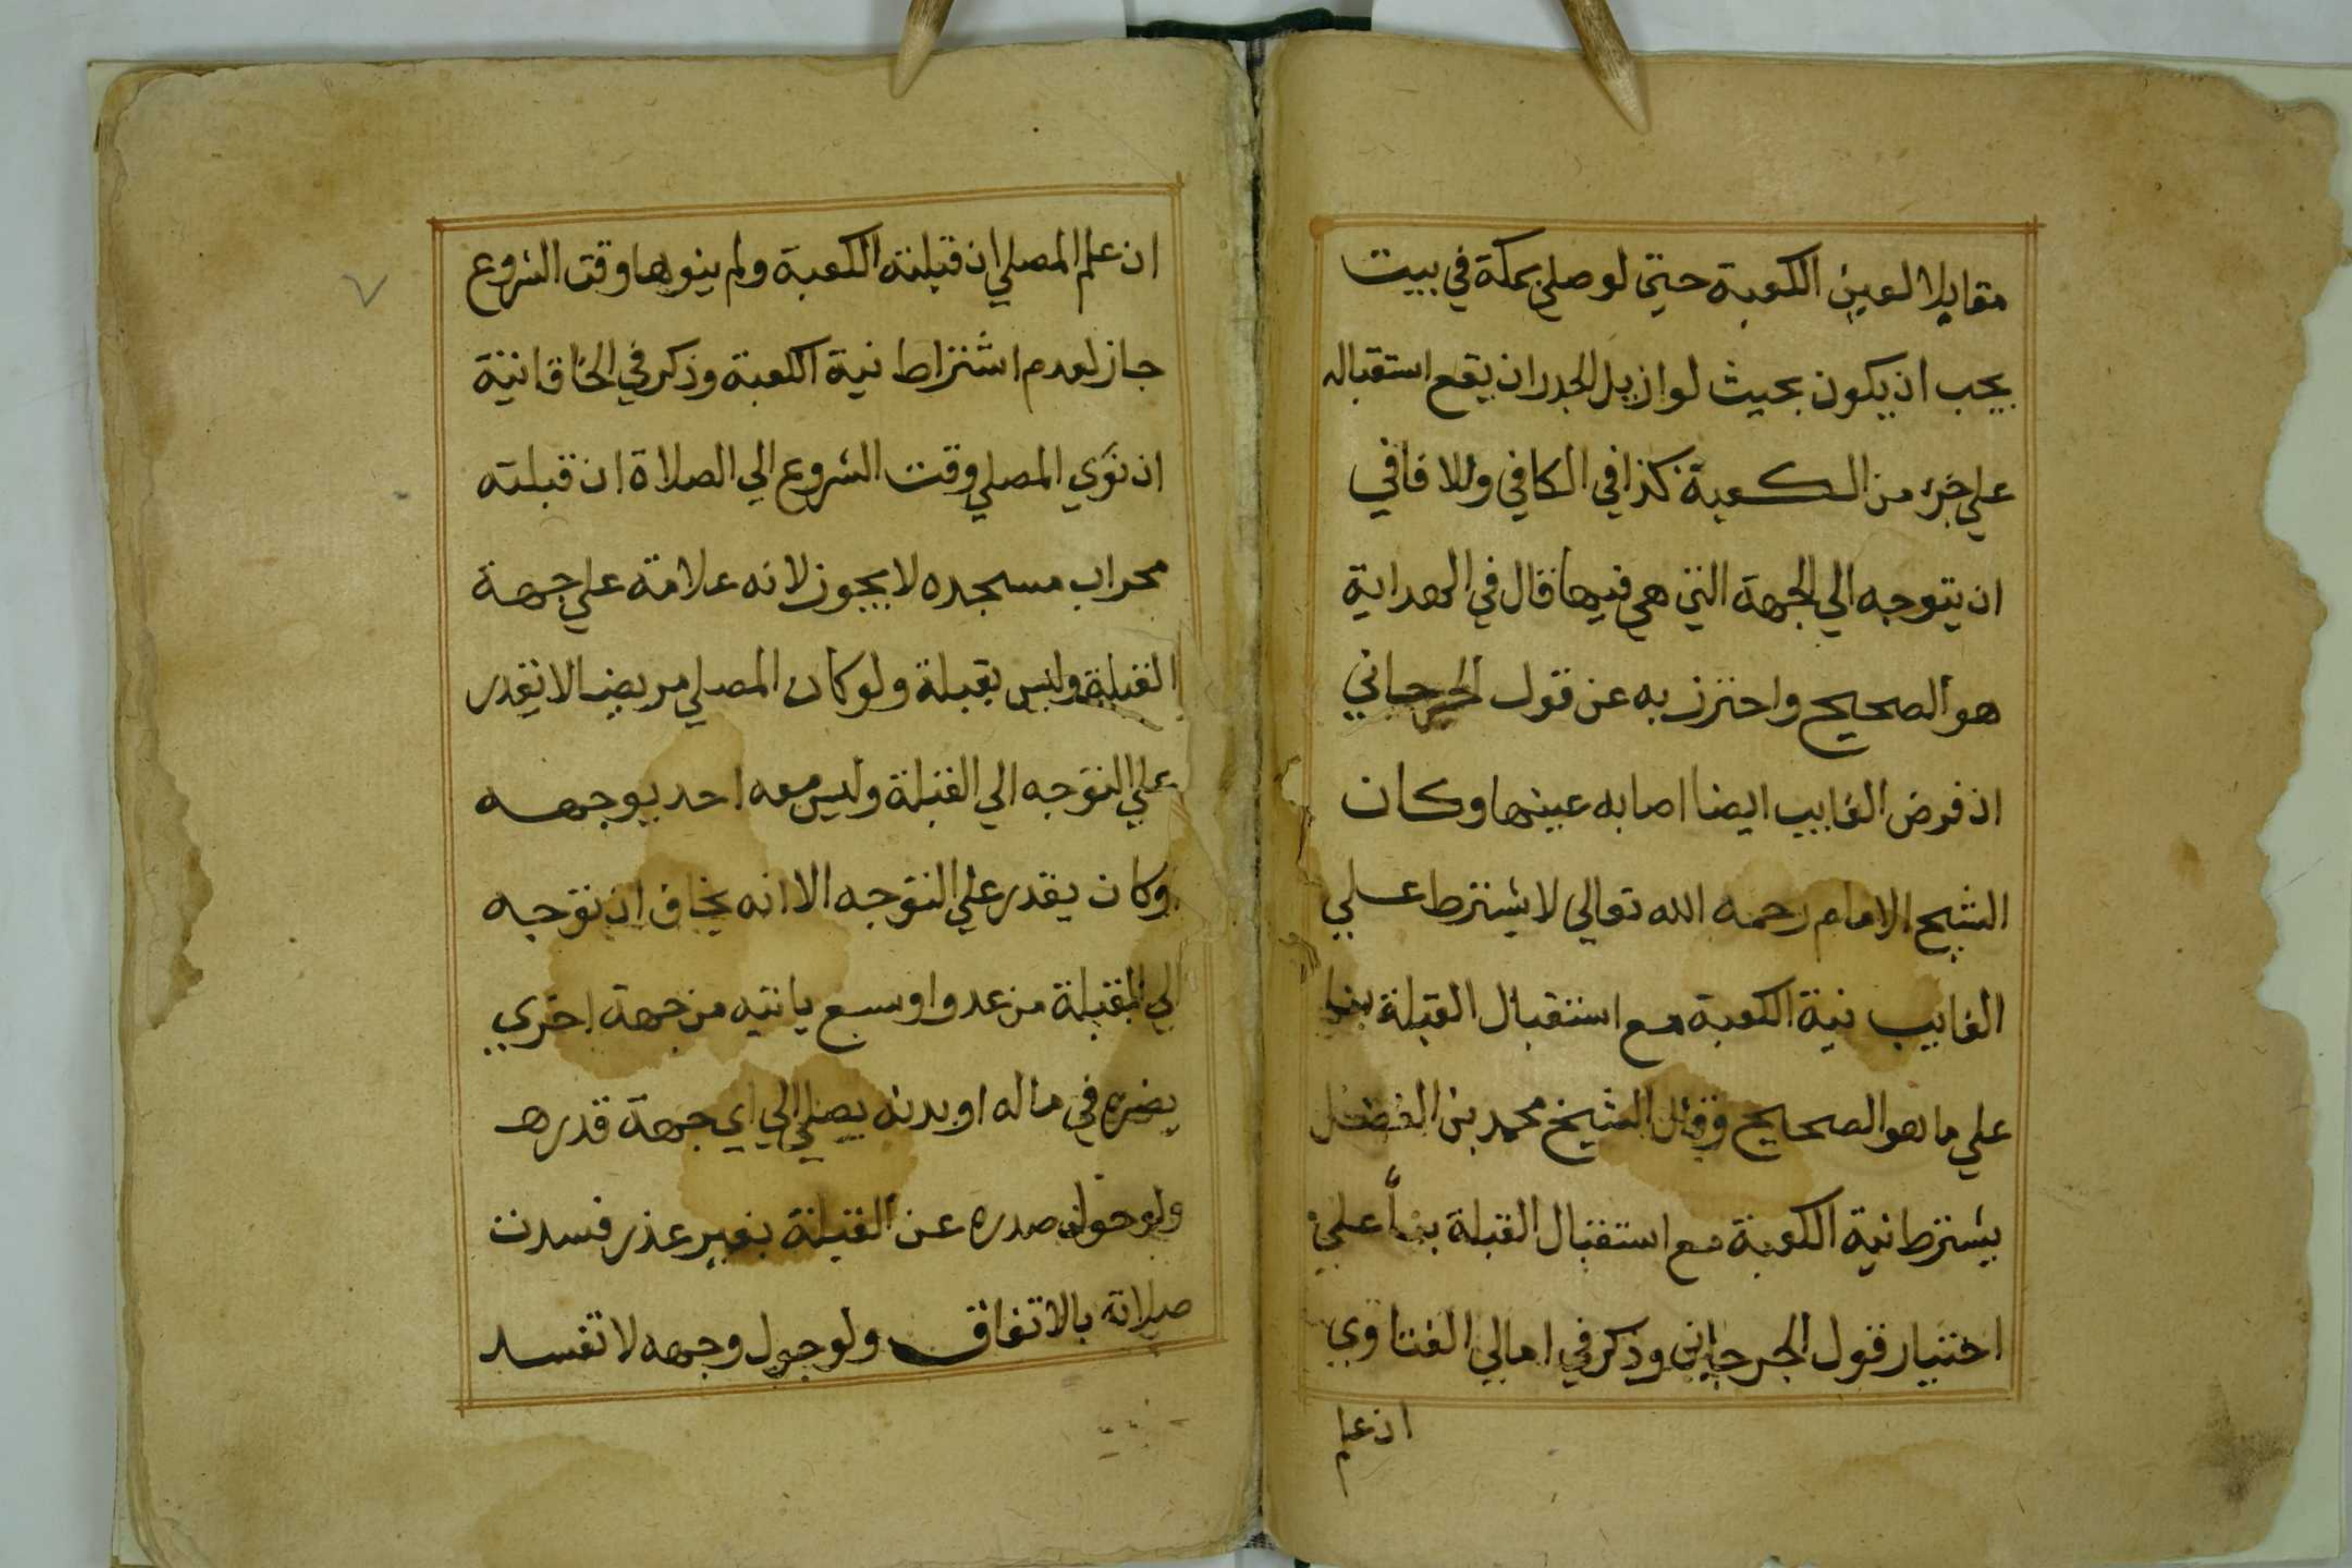 مقابلا لعين الكعبة حتى لو صلى بمكة في بيت
يجب ان يكون بحيث لو ازيل الجدران يقع استقباله
علي جزء من الكعبة كذا في الكافي وللافاقي
ان يتوجه الي الجهة التي هي فيها قال في الهداية
هو الصحيح واحترز به عن قول الجرجاني
اذ فرض الغايب ايضا اصابه عينها وكان
الشيخ الامام رحمه الله تعالي لا يشترط علي
الغايب نية الكعبة مع استقبال القبلة بنا
علي ما هو الصحيح وقال الشيخ محمد بن الفضل
يشترط نية الكعبة مع استقبال القبلة بنأ علي
اختيار قول الجرجاني وذكر في امالي الفتاوي
ان علم
ان علم المصلي ان قبلته الكعبة ولم ينوها وقت الشروع
جاز لعدم اشتراط نية الكعبة وذكر في الخاقانية
ان نوي المصلي وقت الشروع الي الصلاة ان قبلته
محراب مسجده لا يجوز لانه علامة علي جهة
القبلة وليس بقبلة ولو كان المصلي مريضا لا يقدر
علي التوجه الي القبلة وليس معه احد يوجهه
وكان يقدر علي التوجه الا انه يخاف ان توجه
الي القبلة من عدو او سبع ياتيه من جهة اخري
يضره في ماله او بدنه يصلي الي اي جهة قدرها
ولو حول صدره عن القبلة بغير عذر فسدت
صلاته بالاتفاق ولو حول وجهه لا تفسد
٧